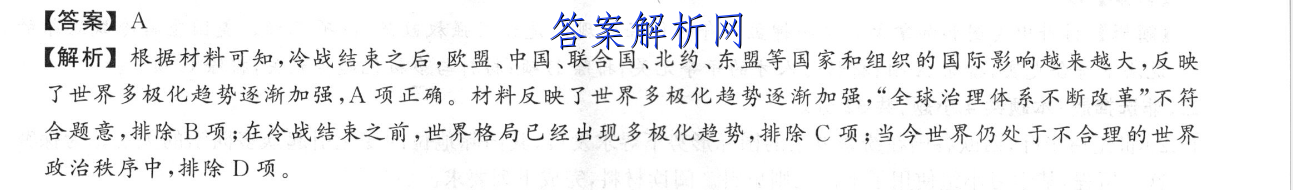 【答案】A
答案解析网
【解析】根据材料可知,冷战结束之后,欧盟、中国、联合国、北约、东盟等国家和组织的国际影响越来越大,反映
了世界多极化趋势逐渐加强,A 项正确。材料反映了世界多极化趋势逐渐加强,“全球治理体系不断改革”不符
合题意,排除 B 项;在冷战结束之前,世界格局已经出现多极化趋势,排除 C 项;当今世界仍处于不合理的世界
政治秩序中,排除 D 项。